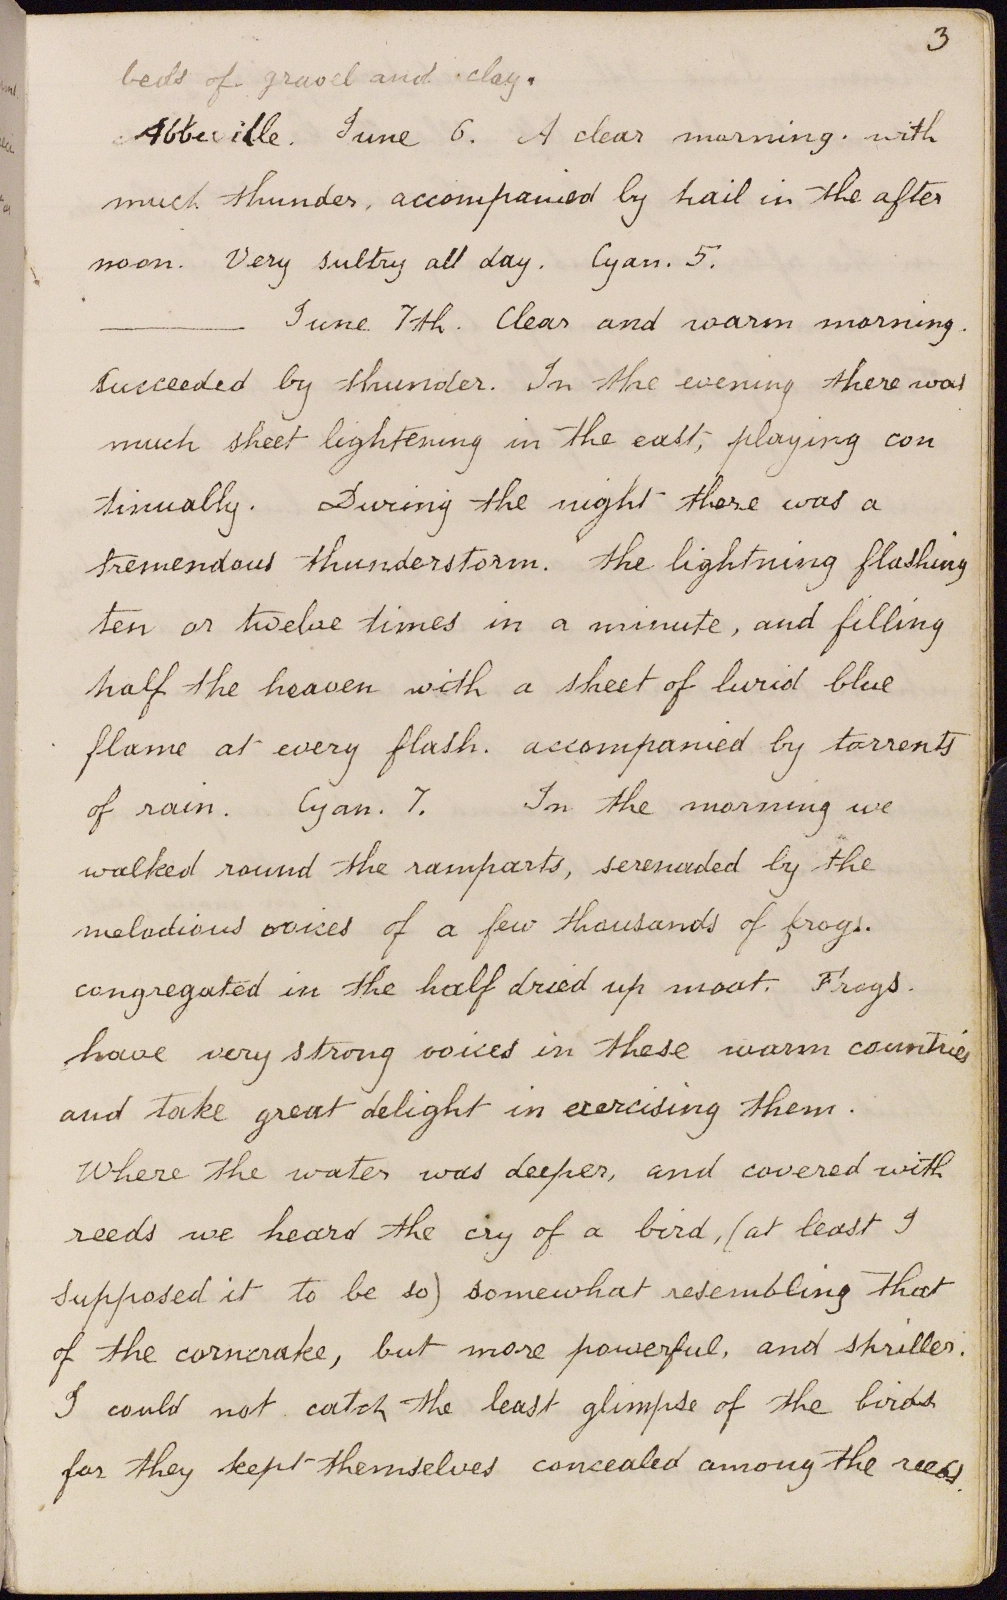 3
beds of gravel and clay.
Abbeville. June 6. A clear morning. with
much thunder, accompanied by hail in the after
noon. Very sultry all day. Cyan. 5.
——— June 7th. Clear and warm morning.
succeeded by thunder. In the evening there was
much sheet lightening in the east, playing con
tinually. During the night there was a
tremendous thunderstorm. the lightning flashing
ten or twelve times in a minute, and filling
half the heaven with a sheet of lurid blue
flame at every flash. accompanied by torrents
of rain. Cyan. 7. In the morning we
walked round the ramparts, serenaded by the
melodious voices of a few thousands of frogs.
congregated in the half dried up moat. Frogs.
have very strong voices in these warm countries
and take great delight in exercising them.
Where the water was deeper, and covered with
reeds we heard the cry of a bird, (at least I
supposed it to be so) somewhat resembling that
of the corncrake, but more powerful, and shriller.
I could not catch the least glimpse of the birds
for they kept themselves concealed among the reeds.